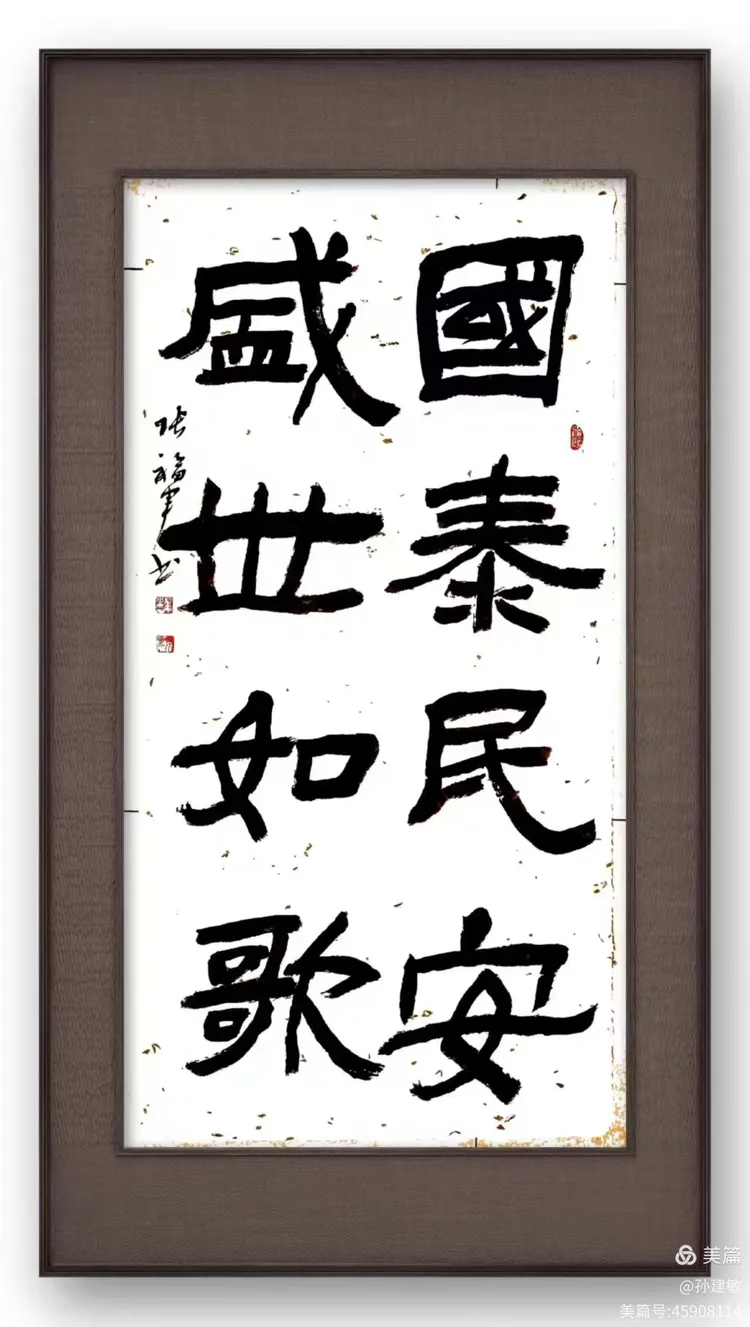 國泰民安
盛世如歌
张福军书
美篇
@孙建敏
美篇号:45908114